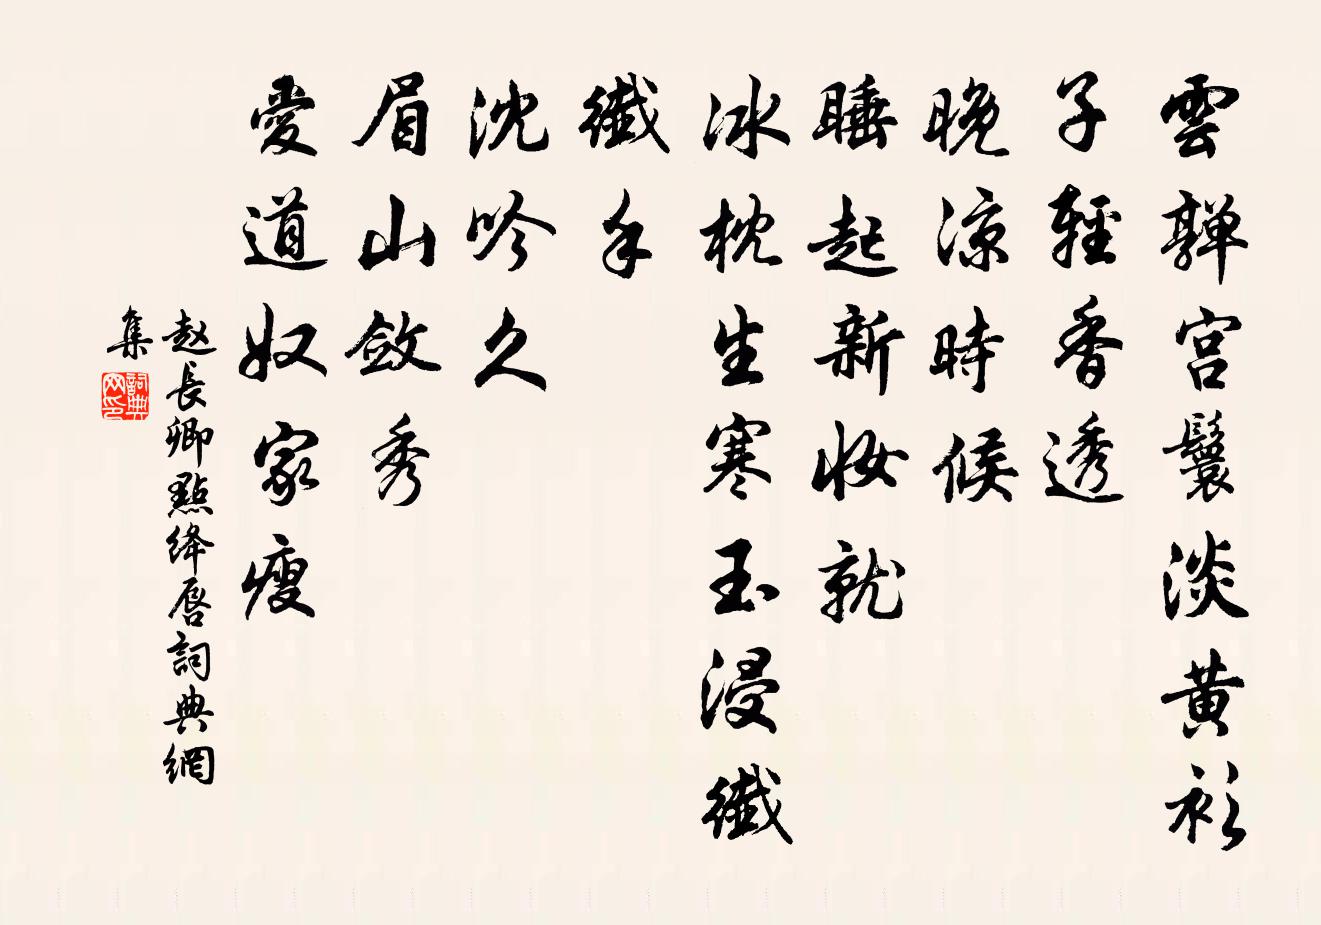 雲嚲宮鬟淡黃衫
子輕香透
晚涼時候
睡起新妝就
冰枕生寒玉浸纖
纖手
沈吟久
眉山斂秀
愛道奴家瘦
赵長卿點绛唇詞典網
集
詞典网印